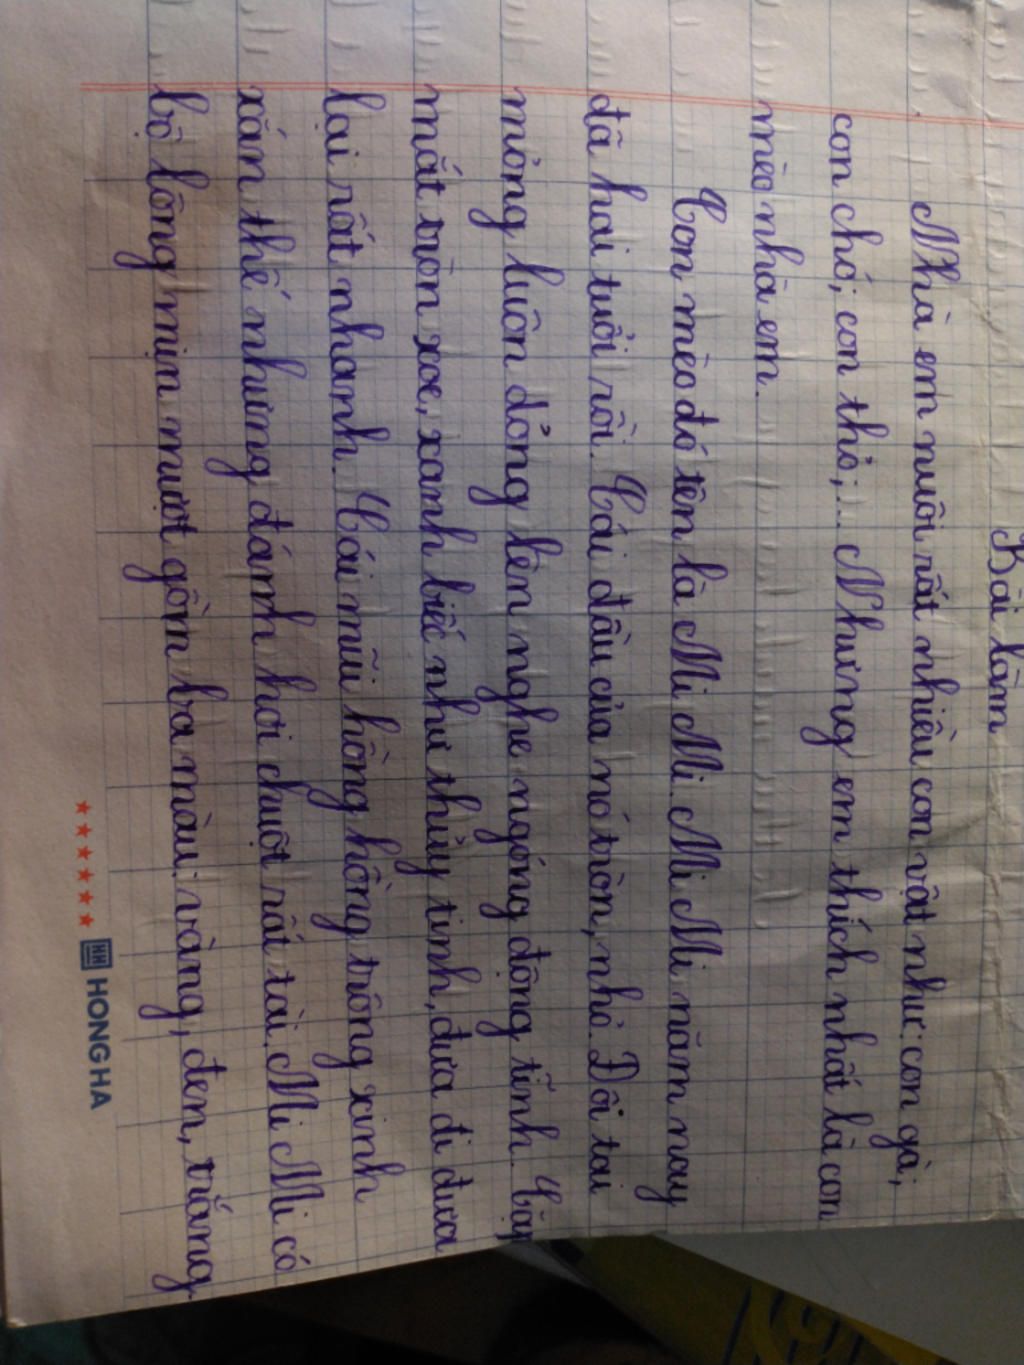 Bài làm
Nhà em nuôi rất nhiều con vật như: con gà;
con chó; con thỏ;... Nhưng em thích nhất là con
mèo nhà em.
Con mèo đó tên là Mi Mi. Mi Mi năm nay
đã hai tuổi rồi. Cái đầu của nó tròn, nhỏ. Đôi tai
mỏng luôn dỏng lên nghe ngóng động tĩnh. Cặp
mắt tròn xoe, xanh biếc như thủy tinh, đưa đi đưa
lại rất nhanh. Cái mũi hồng hồng trông xinh
xắn thế nhưng đánh hơi chuột rất tài. Mi Mi có
bộ lông mịn mượt gồm ba màu: vàng, đen, trắng
HONG HA